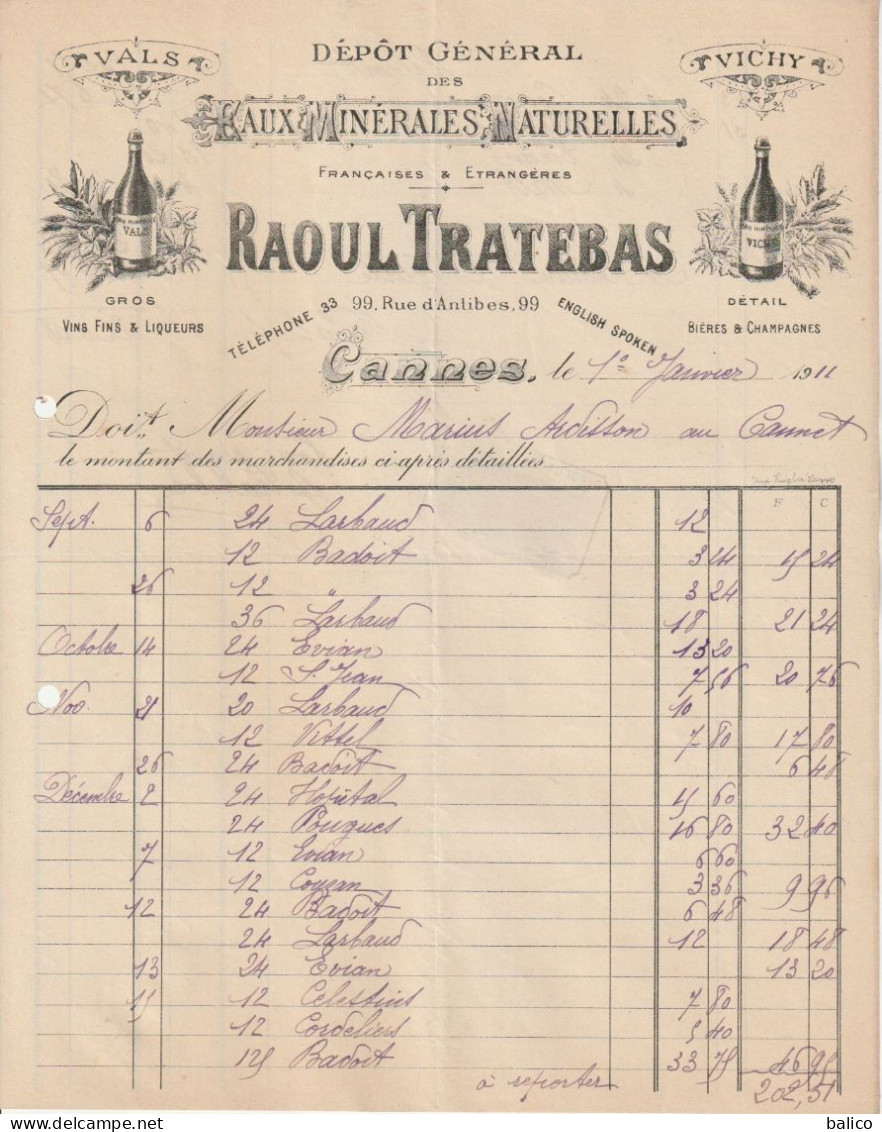 VALS
VICHY
DÉPÔT GÉNÉRAL
DES
EAUX MINÉRALES NATURELLES
FRANÇAISES & ETRANGÈRES
VALS
VICHY
RAOUL TRATEBAS
GROS
VINS FINS & LIQUEURS
DÉTAIL
BIÈRES & CHAMPAGNES
TÉLÉPHONE 33
99, Rue d'Antibes, 99
ENGLISH SPOKEN
Cannes, le 1º Janvier 1911
Doit Monsieur Marius Ardisson au Cannet
le montant des marchandises ci-après détaillées
F C
Sept. 6 24 Larbaud 12
12 Badoit 3 24 15 24
26 12 " 3 24
36 Larbaud 18 21 24
Octobre 14 24 Evian 13 20
12 S. Jean 7 56 20 76
Nov. 21 20 Larbaud 10
12 Vittel 7 80 17 80
26 24 Badoit 6 48
Décembre 2 24 Hopital 15 60
24 Pougues 16 80 32 40
7 12 Evian 6 60
12 Couzan 3 36 9 96
12 24 Badoit 6 48
24 Larbaud 12 18 48
13 24 Evian 13 20
15 12 Celestins 7 80
12 Cordeliers 5 40
125 Badoit 33 75 46 95
à reporter 202,51
balico